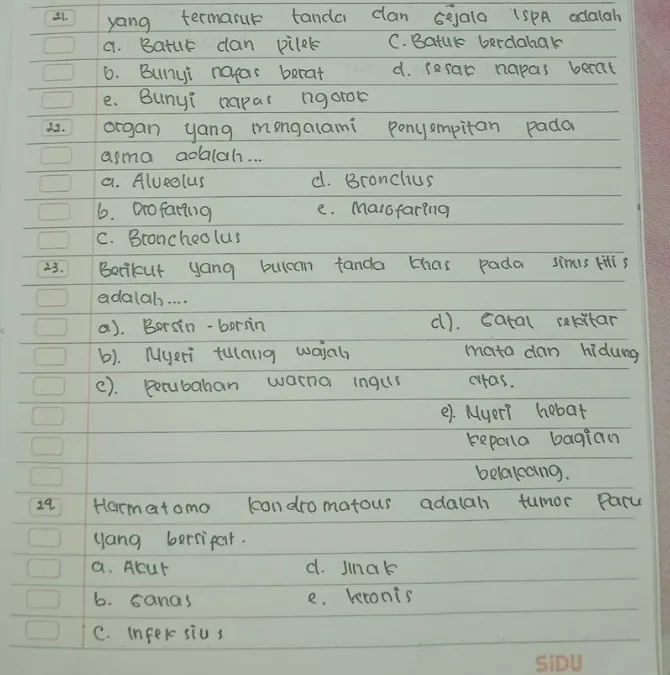 21. yang termasuk tanda dan Gejala ISPA adalah
a. Batuk dan pilek C. Batuk berdahak
b. Bunyi napas berat d. sesak napas berat
e. Bunyi napas ngorok
22. organ yang mengalami penyempitan pada
asma adalah...
a. Alveolus d. Bronchus
b. Orofaring e. Nasofaring
C. Broncheolus
23. Berikut yang bukan tanda khas pada sinusitis
adalah....
a). Bersin - bersin d). Gatal sekitar
b). Nyeri tulang wajah mata dan hidung
c). perubahan warna ingus atas.
e). Nyeri hebat
kepala bagian
belakang.
24. Harmatomo kondromatous adalah tumor Paru
yang bersipat.
a. Akut d. Jinak
b. Ganas e. kronis
C. Infeksius
SiDU